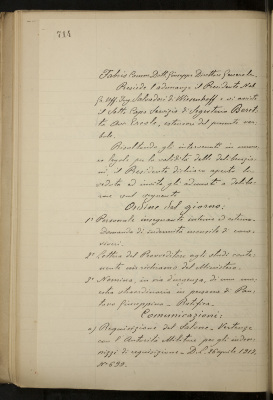 714
Fabris Comm. Dott. Giuseppe Direttore Generale.
Presiede l'adunanza il Presidente Nob.
Ing. Salvadori di Wiesenhoff e vi assiste
il Capo Servizio di Segreteria
Cav. Ercole, estensore del presente ver-
bale.
Riscontrando gli intervenuti in numero
legale per la validità delle deliberazio-
ni, il Presidente dichiara aperta la
seduta ed invita gli adunati a delibe-
rare sul seguente
Ordine del giorno:
1° Personale insegnante interino ed esterno.
Domanda di indennità mensile di caro-
viveri.
2° Lettera del Provveditore agli studi conte-
nente un richiamo del Ministero.
3° Nomina, in via d'urgenza, di una mae-
stra straordinaria in persona di
Giuseppina - Ratifica.
Comunicazioni:
a) Requisizioni del Salone - Vertenza
con l'Autorità Militare per gli inden-
nizzi di requisizione - D.L. aprile 1917.
N° 698.